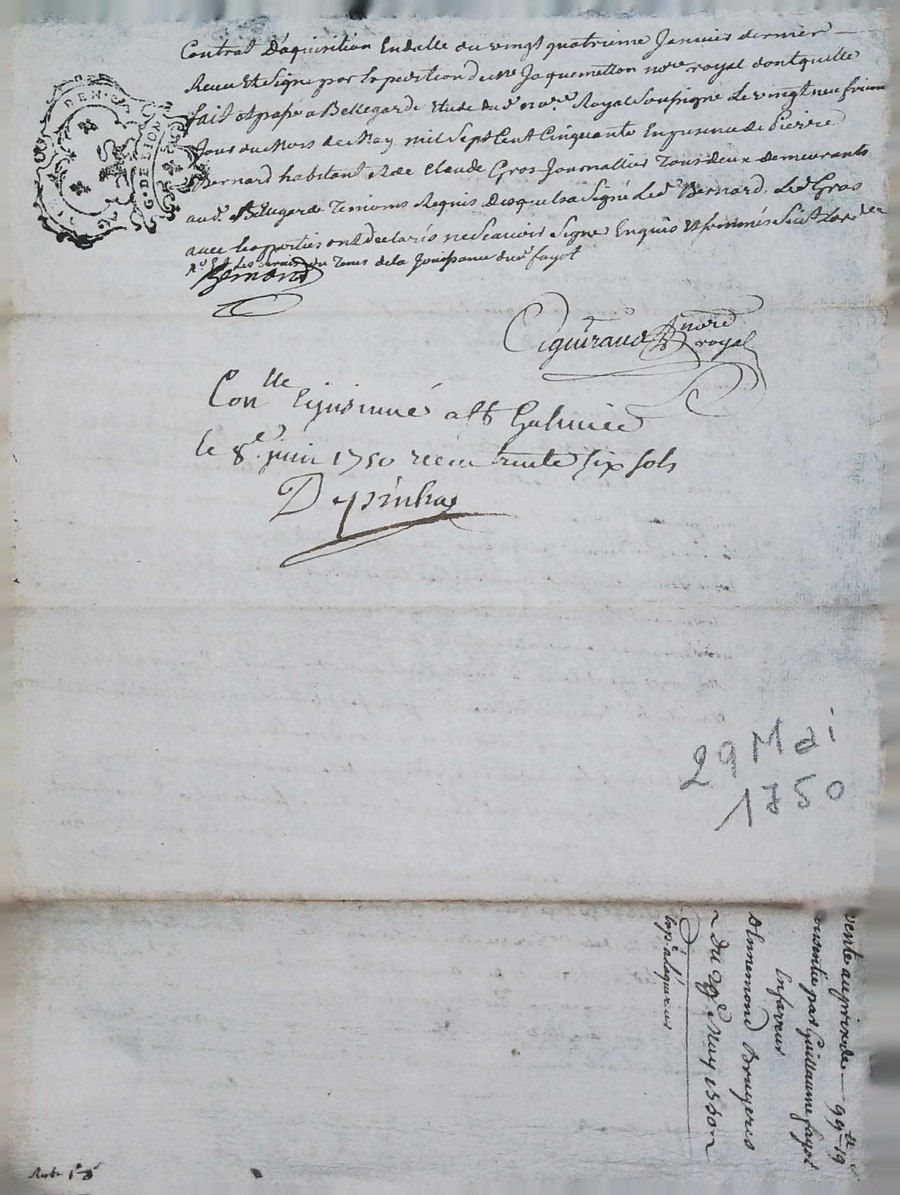 Contrat D'aquisition En datte du vingt quatrieme Janvier dernier
Receu Et Signé par la partion du Me Jaquemetton nore royal dont quitte
fait et passé a Bellegarde Etude du d. nore Royal Soussigné Le vingt neufvieme
Jour du Mois de May mil Sept Cent Cinquante En presence de Pierre
Bernard habitant et de Claude Gros Journallier Tous deux demeurants
aud. Bellegarde Temoins Requis Desquels a Signé Led. Bernard, Led. Gros
avec les parties ont declarés ne Scavoir Signer Enquis Et sommés
du Tems de la Jouissance dud. fayot
Bernard
nore
royal
Conlle
le 8e. juin 1750 receu trente six sols
G. DE LION
DEN.
29 Mai
1750
vente au prix de 99tt 19
consentie par Guillaume fayot
En faveur
d'Ennemond Bruyeres
Du 29e May 1750